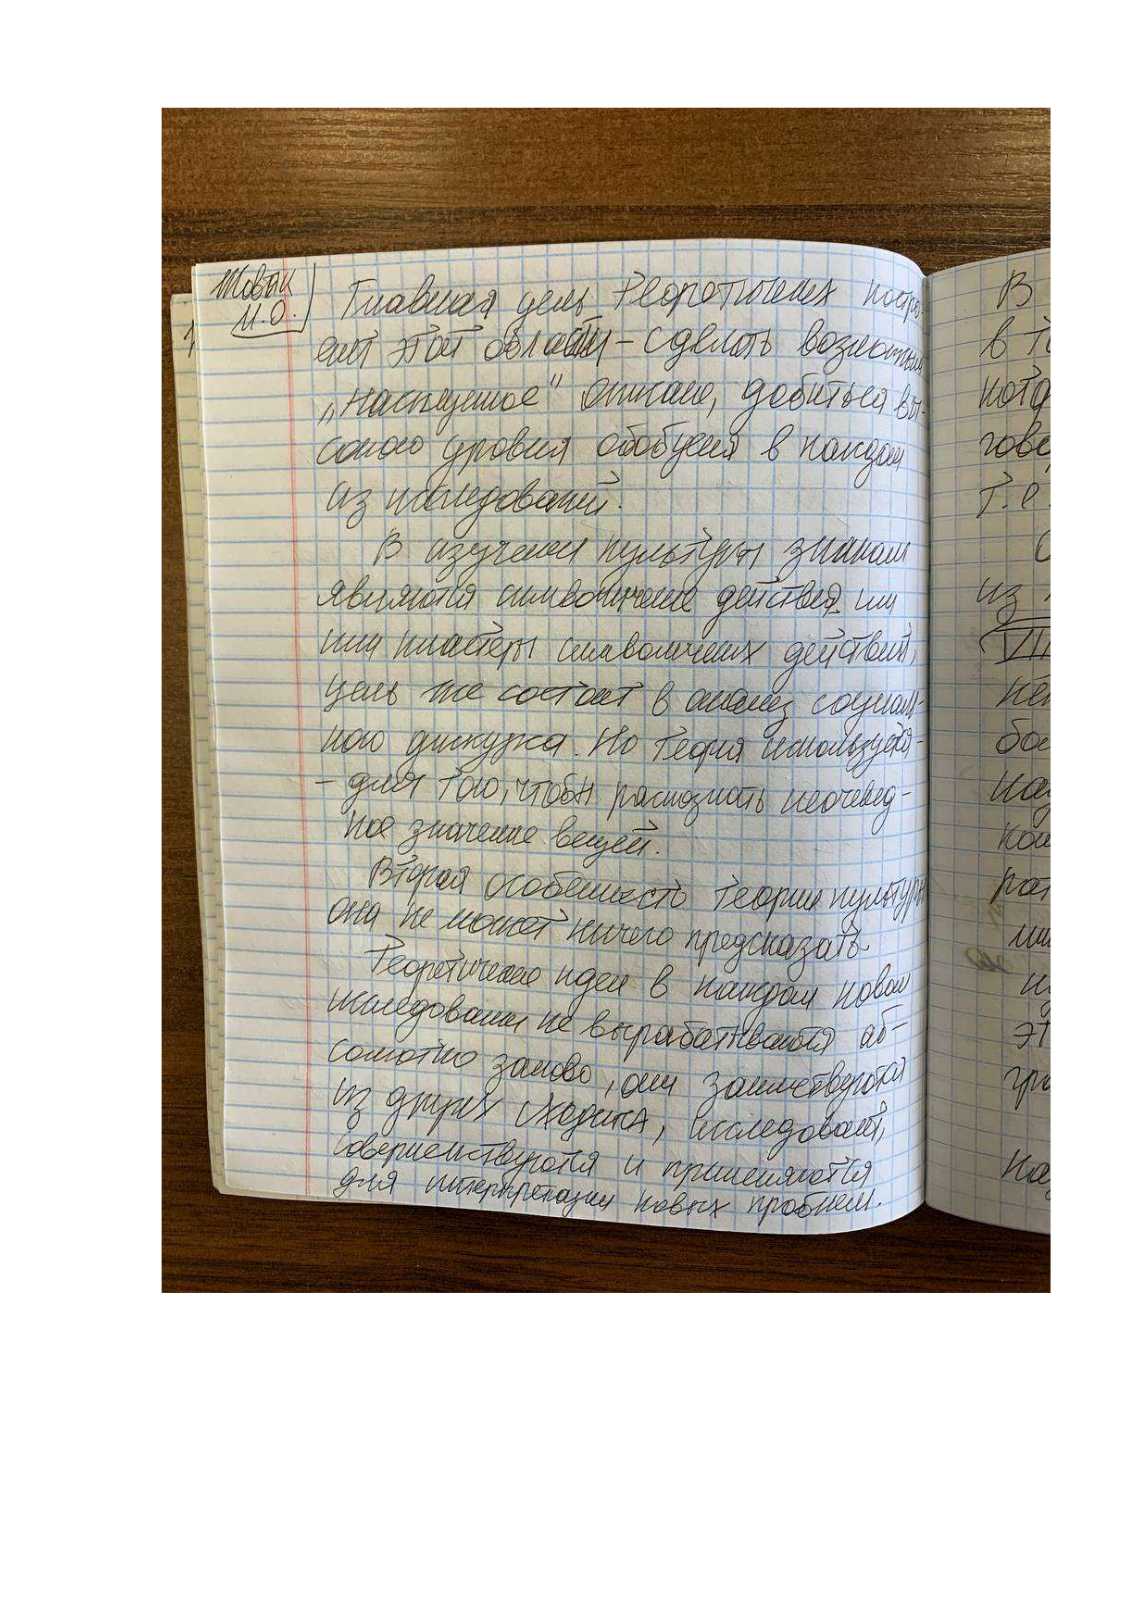 И.О.
Главная цель теоретических постро-
ений этой области – сделать возможным
„насыщенное" описание, добиться вы-
сокого уровня обобщения в каждом
из исследований.
В изучении культуры знаками
являются символические действия или
или кластеры символических действий,
цель же состоит в анализе социаль-
ного дискурса. Но теория используется -
- для того, чтобы распознать неочевид-
ное значение вещей.
Вторая особенность теории культуры
она не может ничего предсказать.
Теоретические идеи в каждом новом
исследовании не вырабатываются аб-
солютно заново, они заимствуются
из других исследований,
совершенствуются и применяются
для интерпретации новых проблем.
В
в
из
VII